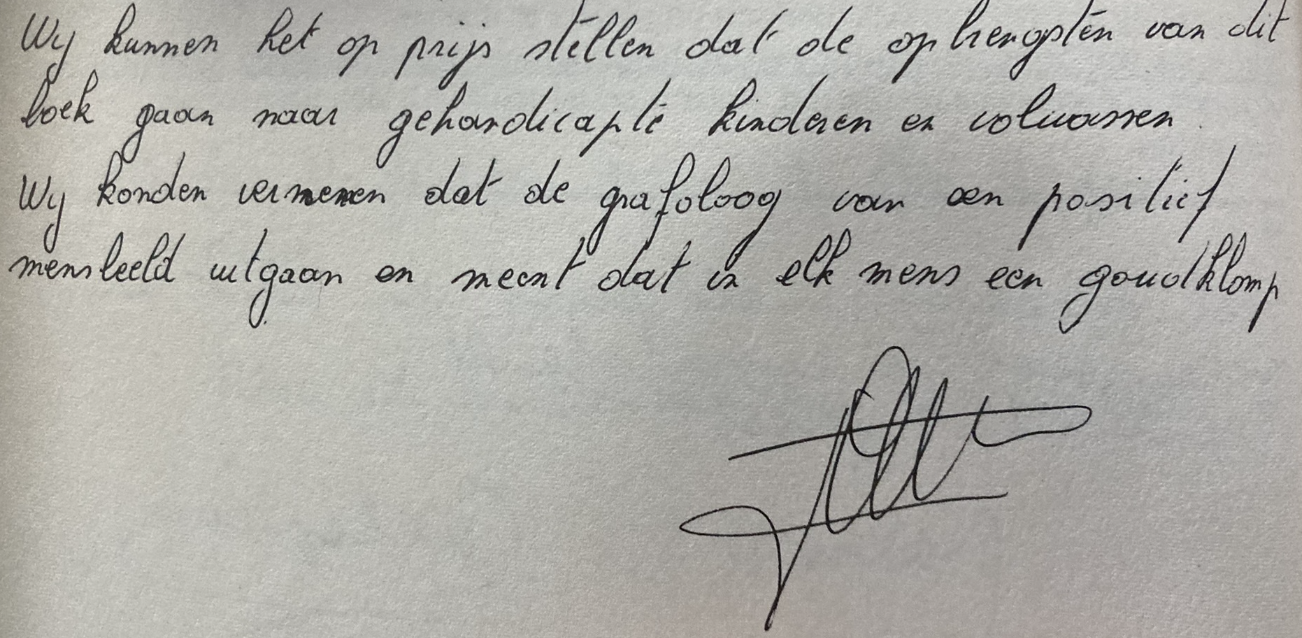 Wij kunnen het op prijs stellen dat de opbrengsten van dit
boek gaan naar gehandicapte kinderen en volwassen.
Wij konden vernemen dat de grafoloog van een positief
mensbeeld uitgaan en meent dat in elk mens een goudklomp